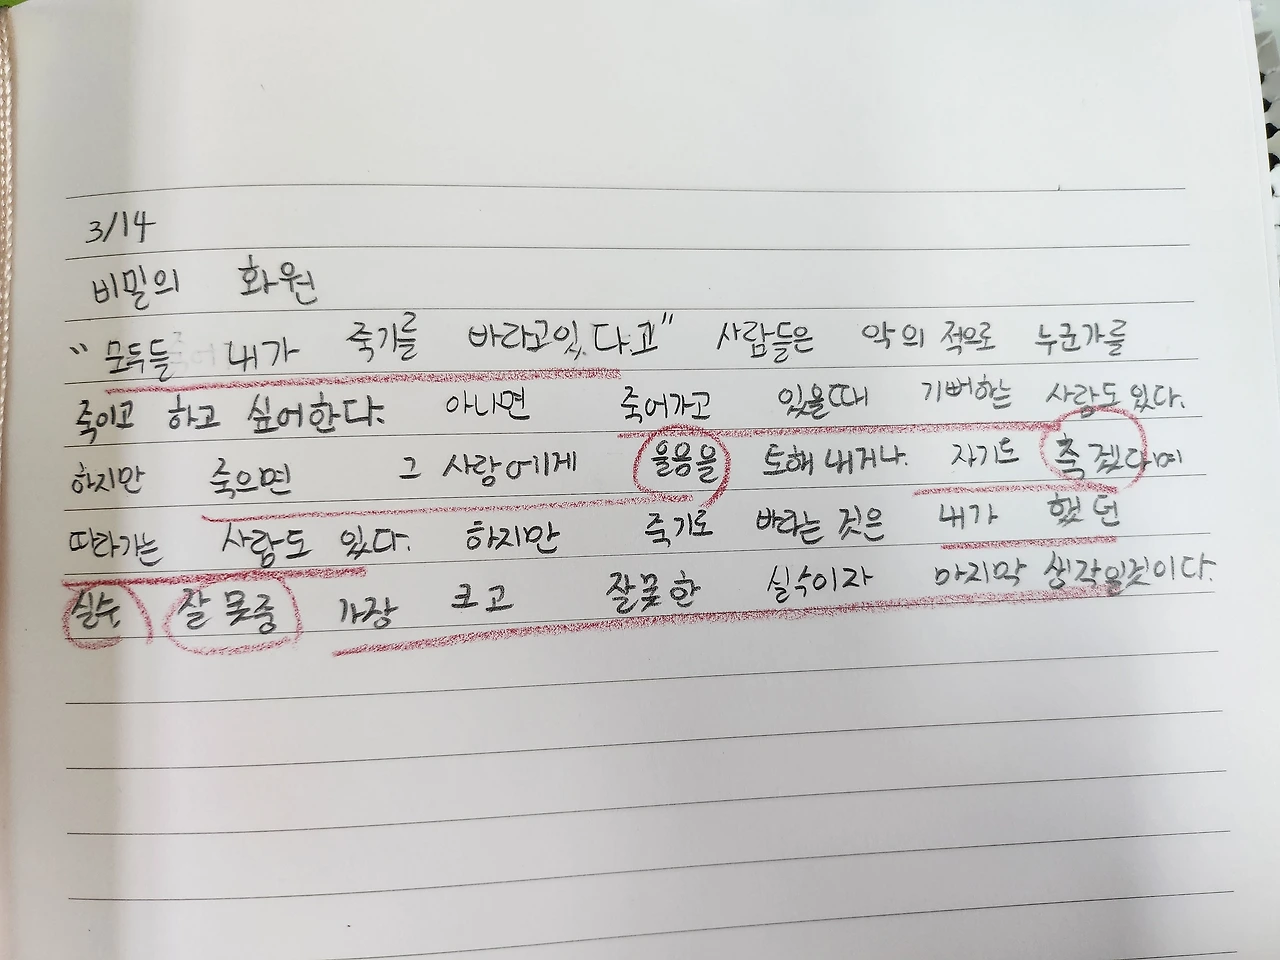 3/14
비밀의 화원
"모두들 내가 죽기를 바라고있다고" 사람들은 악의적으로 누군가를
죽이고 하고 싶어한다. 아니면 죽어가고 있을때 기뻐하는 사람도 있다.
하지만 죽으면 그 사람에게 울음을 토해내거나. 자기도 죽겠다며
따라가는 사람도 있다. 하지만 죽기로 바라는 것은 내가 했던
실수, 잘못중 가장 크고 잘못한 실수이자 마지막 생각일것이다.